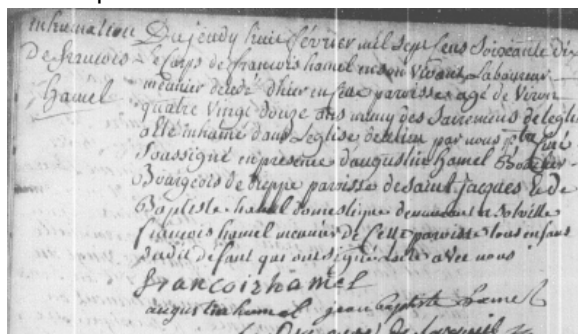 inhumation
De francois
hamel
Du jeudy huit fevrier mil sept cens soixante dix
le corps de francois hamel en son vivant Laboureur
meunier decedé d'hier en cette paroisse agé de viron
quatre vingt douze ans muny des sacremens de leglise
a été inhumé dans l'eglise de ce lieu par nous curé
soussigné en presence d'augustin hamel
Bourgeois de dieppe paroisse de saint jacques & de
Baptiste hamel domestique demeurant a
francois hamel meunier de cette paroisse tous enfans
dudit defunt qui ont signé avec nous
francois hamel
augustin hamel jean baptiste hamel